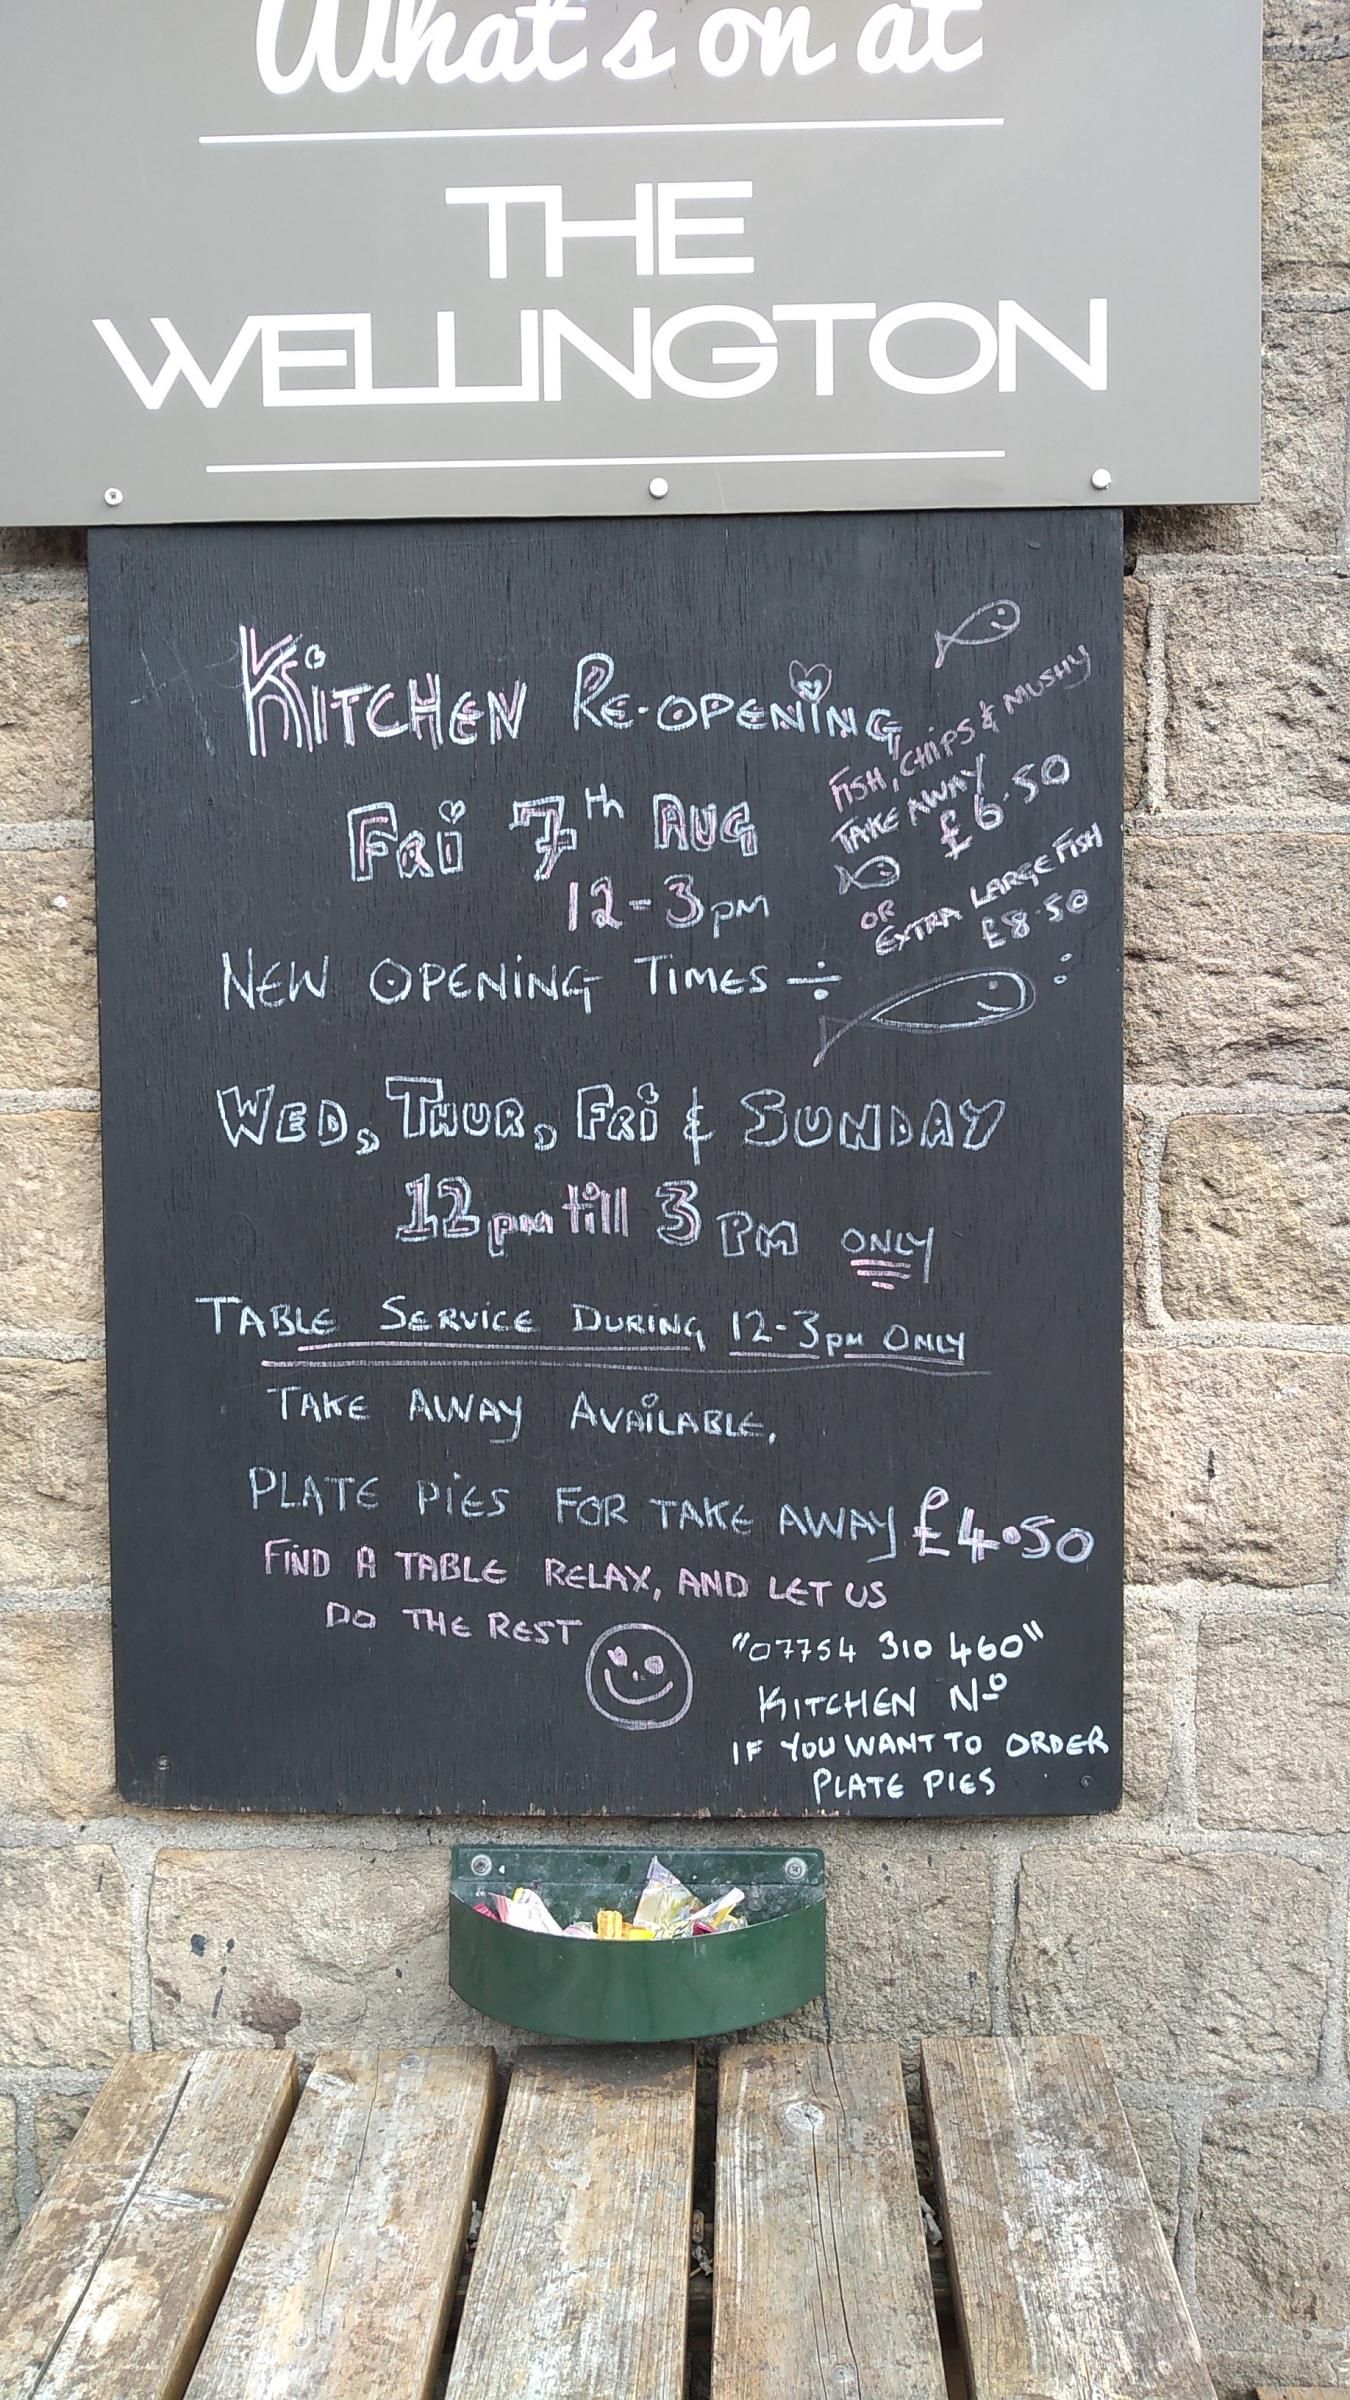 What's on at
THE
WELLINGTON
KiTCHEN RE-OPENiNG
FRi 7th AUG
12-3pm
FiSH, CHiPS & MUSHY
TAKE AWAY
£6.50
OR
EXTRA LARGE FiSH
£8.50
NEW OPENiNG TiMES ÷
WED, THUR, FRi & SUNDAY
12pm till 3 PM ONLY
TABLE SERVICE DURiNG 12-3pm ONLY
TAKE AWAY AVAiLABLE.
PLATE PiES FOR TAKE AWAY £4.50
FiND A TABLE RELAX, AND LET US
DO THE REST
"07754 310 460"
KITCHEN Nº
IF YOU WANT TO ORDER
PLATE PIES